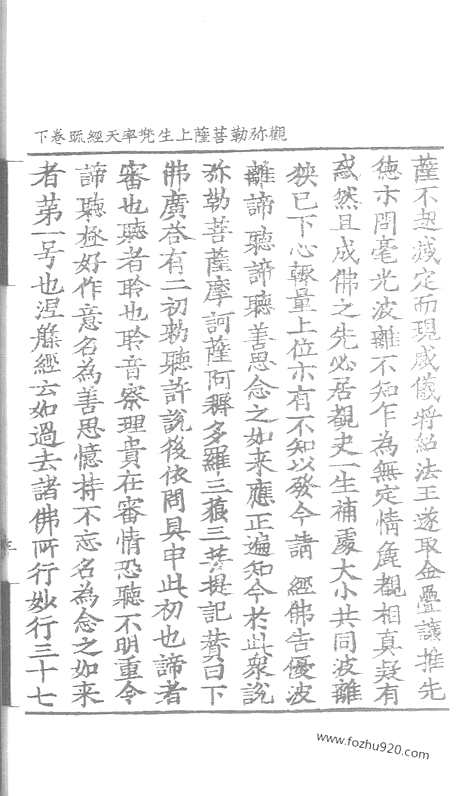 觀弥勒菩薩上生兠率天經䟽卷下
薩不起滅定而現威儀將紹法王遂取金疊讓推先
德亦問毫光波離不知乍為無定情麁觀相真疑有
惑然且成佛之先必居覩史一生補處大小共同波離
狹已下心輙量上位亦有不知以發今請 經佛告優波
離諦聽諦聽善思念之如来應正遍知今於此衆說
弥勒菩薩摩訶薩阿耨多羅三藐三菩提記賛曰下
佛廣荅有二初勑聽許說後依問具申此初也諦者
審也聽者聆也聆音察理貴在審情恐聽不明重令
諦聽極好作意名為善思憶持不忘名為念之如来
者苐一号也涅槃經云如過去諸佛所行妙行三十七
www.fozhu920.com